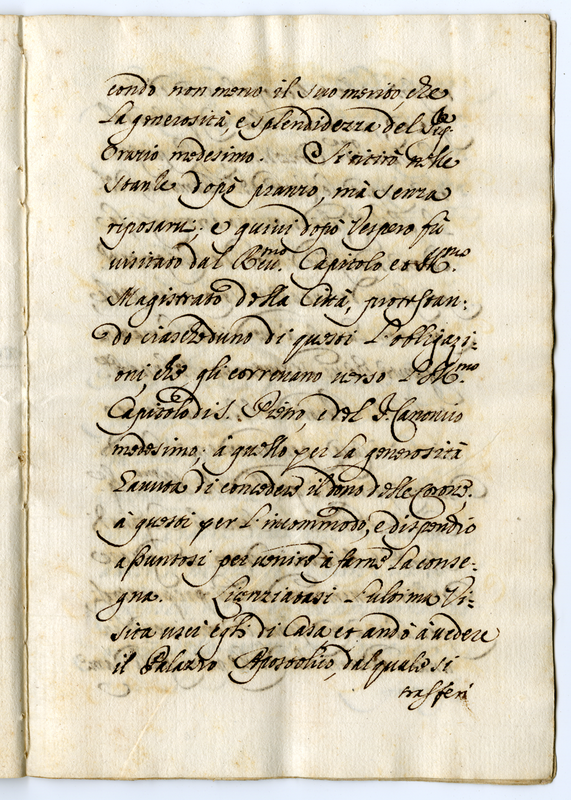 condo non meno il suo merito, che
la generosità, e splendidezza del Sig.re
Orazio medesimo. Si ritirò nelle
stanze dopò pranzo, mà senza
riposarsi: e quivi dopò Vespero fù
visitato dal Rev.mo Capitolo, e
Magistrato della Città, protestan:
do ciascheduno di questi l'obligazi:
oni, che gli correvano verso l'Ill.mo
Capitolo di S. Pietro, e del S. Canonico
medesimo; à quello per la generosità
havuta di concedere il dono delle Corone.
à questi per l'incommodo, e dispendio
assuntosi per venire à farne la conse:
gna. Licenziatasi l'ultima Vi:
sita uscì egli di Casa, et andò à vedere
il Palazzo Apostolico, dal quale si
trasferì